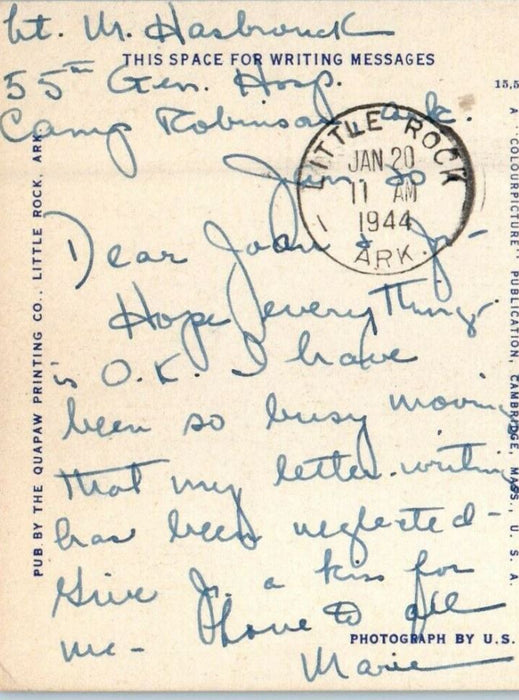 Lt. M. Hasbrouck
THIS SPACE FOR WRITING MESSAGES
55th Gen. Hosp.
Camp Robinson Ark.
Jan 20
LITTLE ROCK
JAN 20
11 AM
1944
ARK.
1
Dear Joan & Jr-
Hope everything
is O.K. I have
been so busy moving
that my letter-writing
has been neglected-
Give Jr. a kiss for
me- Love to all
Marie
PHOTOGRAPH BY U.S.
PUB. BY THE QUAPAW PRINTING CO., LITTLE ROCK, ARK.
15,5
A "COLOURPICTURE" PUBLICATION, CAMBRIDGE, MASS., U. S. A.